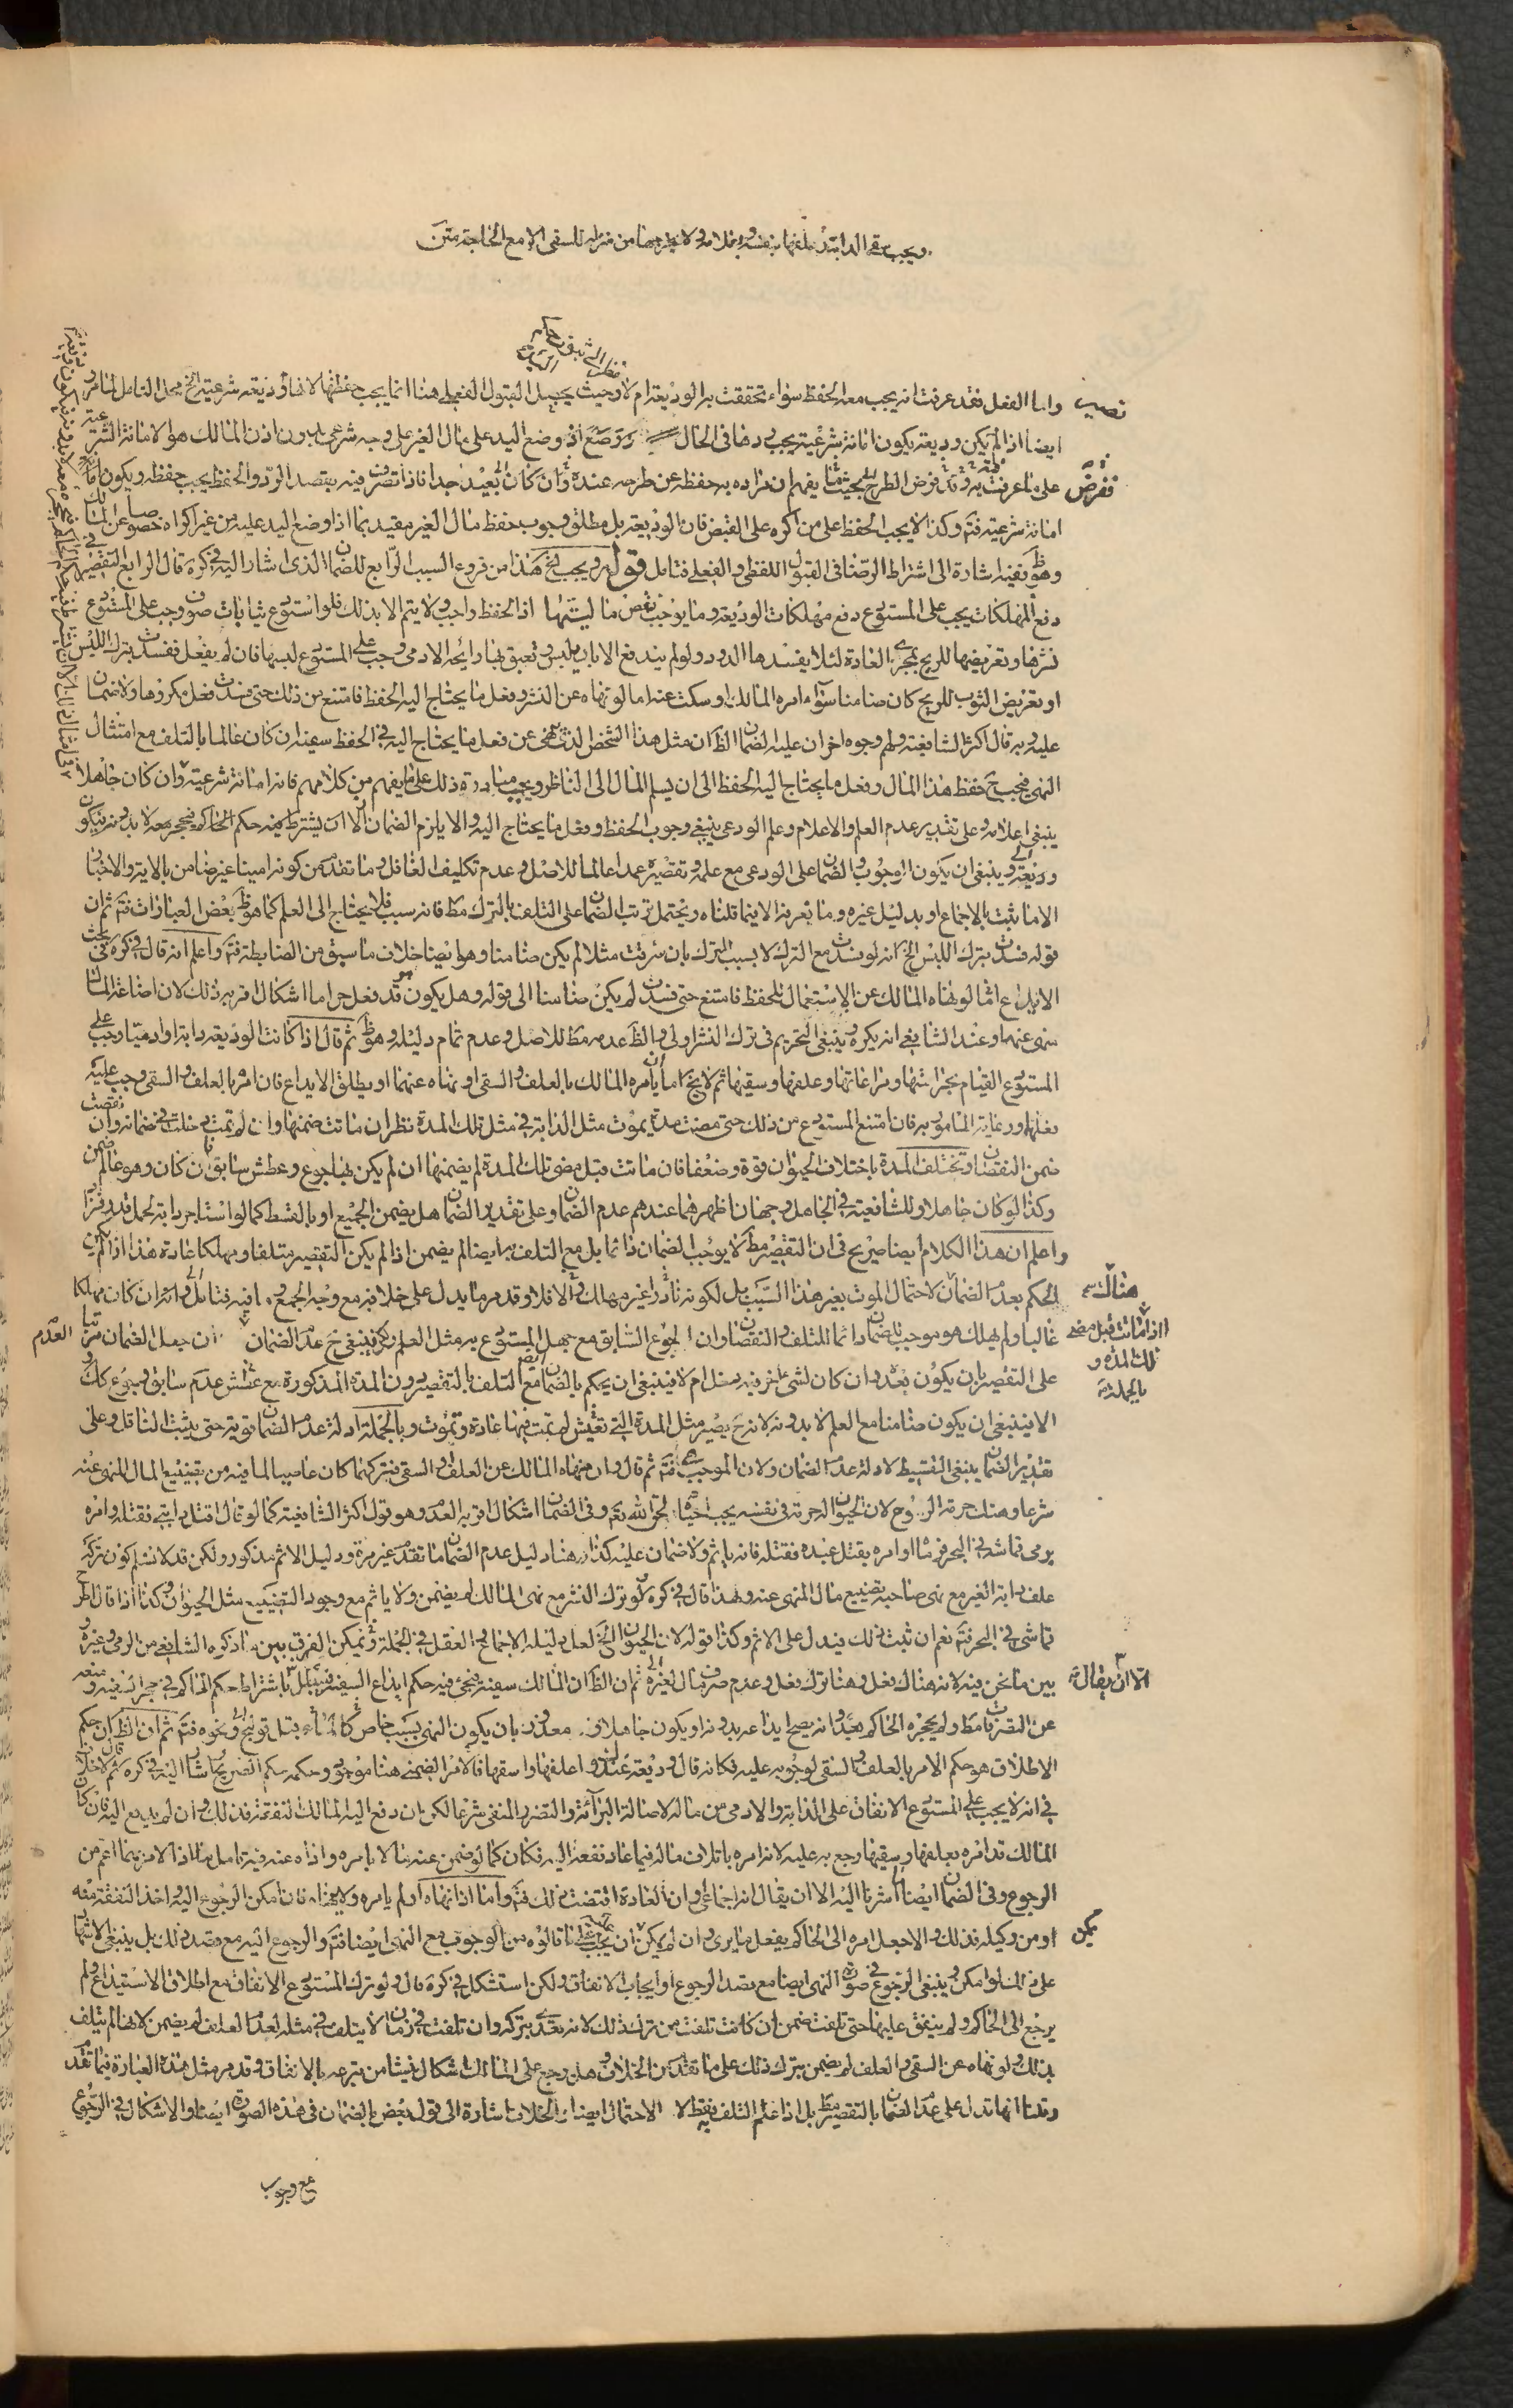 ويجب سقي الدابة وعلفها بنفسه وبغلامه ولا يخرجها من منزله للسقي الا مع الحاجة متن
واما الفعل فقد عرفت انه يجب معه الحفظ سواء تحققت به الوديعة ام لا وحيث يحصل القبول الفعلي هنا انما يجب حفظها لانها وديعة شرعية الخ محل التامل لما مر
ايضا اذا لم يكن وديعة يكون امانة شرعية يجب ردها في الحال ووضع اذ وضع اليد على مال الغير على وجه شرعي بدون اذن المالك هو الامانة الشرعية
على ما عرفت به فرض الطرح بحيث ما يفهم ان مراده به حفظه عن طرحه عنده وان كان بعيدا جدا فاذا تصرف فيه بقصد الرد والحفظ يجب حفظه ويكون
امانة شرعية فتم وكذا لا يجب الحفظ على من اكره على القبض فان الوديعة بل مطلق وجوب حفظ مال الغير مقيد بما اذا وضع اليد عليه من غير اكراه خصوصا عن المالك
وهو ظ ففيه اشارة الى اشتراط الرضا في القبول اللفظي والفعلي فتامل قوله ويجب الخ هذا من فروع السبب الرابع للضمان الذي اشار اليه في كره قال الرابع التقصير في
دفع المهلكات يجب على المستودع دفع مهلكات الوديعة وما يوجب نقص ماليتها اذ الحفظ واجب ولا يتم الا بذلك فلو استودع ثياب صوف وجب على المستودع
نشرها وتعريضها للريح بمجرى العادة لئلا يفسدها الدود ولو لم يندفع الا بان يلبس وتعبق بها رائحة الادمي وجب على المستودع لبسها فان لم يفعل ففسدت بترك اللبس
او تعريض الثوب للريح كان ضامنا سواء امره المالك او سكت عنه اما لو نهاه عن النشر وفعل ما يحتاج اليه الحفظ فامتنع من ذلك حتى فسدت فعل مكروها ولا ضمان
عليه وبه قال اكثر الشافعية ولهم وجه اخر ان عليه الضمان الظ ان مثل هذا الشخص الذي نهى عن فعل ما يحتاج اليه في الحفظ سفيه ان كان عالما بالتلف مع امتثال
النهي فيجب ح حفظ هذا المال وفعل ما يحتاج اليه الحفظ الى ان يسلم المال الى الناظر ويجب مبادرة ذلك على ما يفهم من كلامهم فانه امانة شرعية وان كان جاهلا
ينبغي اعلامه وعلى تقدير عدم العلم والاعلام وعلم الودعي ينبغي وجوب الحفظ وفعل ما يحتاج اليه والا يلزم الضمان الا ان يشترط فيه حكم الحاكم فيحجر معه لا بدونه فيكون
وديعة وينبغي ان يكون وجوب الضمان على الودعي مع علمه وتقصيره عمدا عالما للاصل وعدم تكليف الغافل وما تقدم من كونه امينا غير ضامن بالاية والاخبار
الا ما ثبت بالاجماع او بدليل غيره وما نعرفه الا فيما قلناه ويحتمل ترتب الضمان على التلف بالترك مط فانه سبب فلا يحتاج الى العلم كما هو ظ بعض العبارات فتم ثم ان
قوله فسدت بترك اللبس الخ انه لو فسدت مع الترك لا بسبب الترك بان سرقت مثلا لم يكن ضامنا وهو ايضا خلاف ما سبق من الضابطة فتم واعلم انه قال في كره في بحث
الايداع اما لو نهاه المالك عن الاستعمال للحفظ فامتنع حتى فسدت لم يكن ضامنا الى قوله وهل يكون قد فعل حراما اشكال اقربه ذلك لان اضاعة المال
منهي عنها وعند الشافعي انه يكره وينبغي التحريم في ترك النشر اولى والظ عدمه مط للاصل وعدم تمام دليله وهو ظ ثم قال اذا كانت الوديعة دابة او ادميا وجب على
المستودع القيام بحراستها ومراعاتها وعلفها وسقيها ثم لا يخ اما ان يأمره المالك بالعلف والسقي او نهاه عنهما او يطلق الايداع فان امره بالعلف والسقي وجب عليه
فعلهما ورعاية المامور به فان امتنع المستودع من ذلك حتى مضت مدة يموت مثل الدابة في مثل تلك المدة نظر ان ماتت ضمنها وان لم تمت دخلت في ضمانه وان نقصت
ضمن النقصان وتختلف المدة باختلاف الحيوان قوة وضعفا فان ماتت قبل مضي تلك المدة لم يضمنها ان لم يكن بها جوع وعطش سابق وان كان وهو عالم ضمن
وكذا لو كان جاهلا وللشافعية في الجاهل وجهان اظهرهما عندهم عدم الضمان وعلى تقدير الضمان هل يضمن الجميع او بالقسط كما لو استاجر دابة لحمل قدر فزاد
واعلم ان هذا الكلام ايضا صريح في ان التقصير مط لا يوجب الضمان دائما بل مع التلف به ايضا لم يضمن اذا لم يكن التقصير متلفا ومهلكا عادة هذا اذا لم يكن
الحكم بعدم الضمان لاحتمال الموت بغير هذا السبب بل لكونه نادرا غير مهلك والا فلا وقد مر ما يدل على خلافه مع وجه الجمع وما فيه فتامل وانه ان كان مهلكا
غالبا ولم يهلك هو موجب لضمان دائما للتلف والنقصان وان الجوع السابق مع جهل المستودع به مثل العلم ولكن ينبغي ح عدم الضمان ان جعل الضمان مرتبا
على التقصير بان يكون بعده وان كان لشيء اخر فيه دخل ام لا فينبغي ان يحكم بالضمان مع التلف بالتقصير دون المدة المذكورة مع عطش عدم سابق وجوع كذلك
الا فينبغي ان يكون ضامنا مع العلم لا بدونه لانه ح يصير مثل المدة التي تعيش لم تمت فيها عادة وتموت وبالجملة ادلة عدم الضمان قوية حتى يثبت الناقل وعلى
تقدير الضمان ينبغي التقسيط لادلة عدم الضمان ولان الموجب فتم ثم قال وان نهاه المالك عن العلف والسقي فتركهما كان عاصيا لما فيه من تضييع المال المنهي عنه
شرعا وهتك حرمة الروح لان الحيوان له حرمة في نفسه يجب احياؤه لحق الله تعم وفي الضمان اشكال اقربه العدم وهو قول اكثر الشافعية كما لو قال اقتل دابتي فقتله وامره
برمي قماشه في البحر فرماه او امره بقتل عبده فقتله فانه ياثم ولا ضمان عليه كذا هنا دليل عدم الضمان ما تقدم غير مرة ودليل الاثم مذكور ولكن قد لا نسلم كون ترك
علف دابة الغير مع نهي صاحبه تضييع مال المنهي عنه ولهذا قال في كره لو ترك النشر مع نهي المالك لم يضمن ولا ياثم مع وجود التضييع مثل الحيوان وكذا اذا قال ارم
قماشي في البحر فتم نعم ان ثبت ذلك فيدل على الاثم وكذا قوله لان الحيوان الخ لعل دليله الاجماع والعقل في الجملة ويمكن الفرق بين ما ذكره الشافعي من الرمي وغيره
بين ما نحن فيه لانه هناك فعل وهنا ترك فعل وعدم صرف مال لغيره ثم ان الظ ان المالك سفيه فيجئ فيه حكم ايداع السفيه باشتراط حكم الحاكم في حجر السفيه ومنعه
عن التصرفات مط ولم يحجره الحاكم بعد وانه يصح ايداعه بدونه او يكون جاهلا معذور بان يكون النهي بسبب خاص ونحوه فتم ثم ان الظ ان حكم
الاطلاق هو حكم الامر بالعلف والسقي لوجوبه عليه فكانه قال وديعة عندك واعلفها واسقها فالامر الضمني هنا موجود وحكمه حكم الصريح اشار اليه في كره ثم قال لا خلاف
في انه لا يجب على المستودع الانفاق على الدابة والادمي من ماله لاصالة البرائة والضرر المنفي شرعا لكن ان دفع اليه المالك النفقة فذلك وان لم يدفع اليه فان كان
المالك قد امره بعلفها وسقيها رجع به عليه لانه امره باتلاف ماله فيما عاد نفعه اليه فكان كما لو ضمن عنه مالا بامره واداه عنه فيه تامل اذ الامر بهما اعم من
الرجوع وفي الضمان ايضا اشرنا اليه الا ان يقال انه اجماعي وان العادة اقتضت ذلك فتم واما اذا نهاه او لم يامره ولا نهاه فان امكن الرجوع اليه واخذ النفقة منه
او من وكيله فذلك والا جعل امره الى الحاكم يفعل ما يرى وان لم يكن ان يجب على ما قالوه من الوجوب مع النهي ايضا فتم والرجوع اليه مع قصد ذلك بل ينبغي الاشهاد
على ذلك لو امكن وينبغي الرجوع في صورة النهي ايضا مع قصد الرجوع او ايجاب الانفاق ولكن استشكل في كره قال ولو ترك المستودع الانفاق مع اطلاق الاستيداع ولم
يرجع الى الحاكم ولم ينفق عليها حتى تلفت ضمن ان كانت تلفت من ترك ذلك لانه تعدى بتركه وان تلفت في زمان لا يتلف في مثله لعدم العلف لم يضمن لانها لم تتلف
بذلك ولو نهاه عن السقي والعلف لم يضمن بترك ذلك على ما تقدم من الخلاف وهل يرجع على المالك اشكال ينشا من تبرعه بالانفاق وقد مر مثل هذه العبارة فيما تقدم
وقلنا انها تدل على عدم الضمان بالتقصير مط بل اذا علم التلف به فقط لا الاحتمال ايضا والخلاف اشارة الى قول بعض بالضمان في هذه الصورة ايضا والاشكال في الرجوع
مع وجوب
نصيب
فقرض
هناك
اذا ماتت قبل مضي
تلك المدة و
بالجملة
العدم
الا ان يقال
يمكن